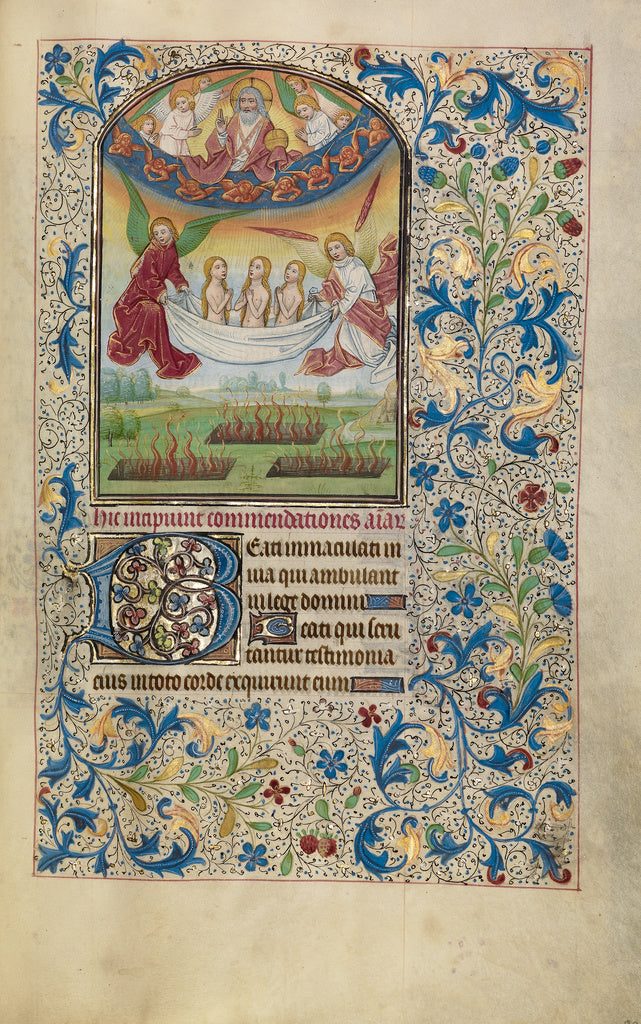 hic incipiunt commendationes aīaꝝ
Beati immaculati in
uia qui ambulant
in lege domini
Beati qui scru
tantur testimonia
eius in toto corde exquirunt eum